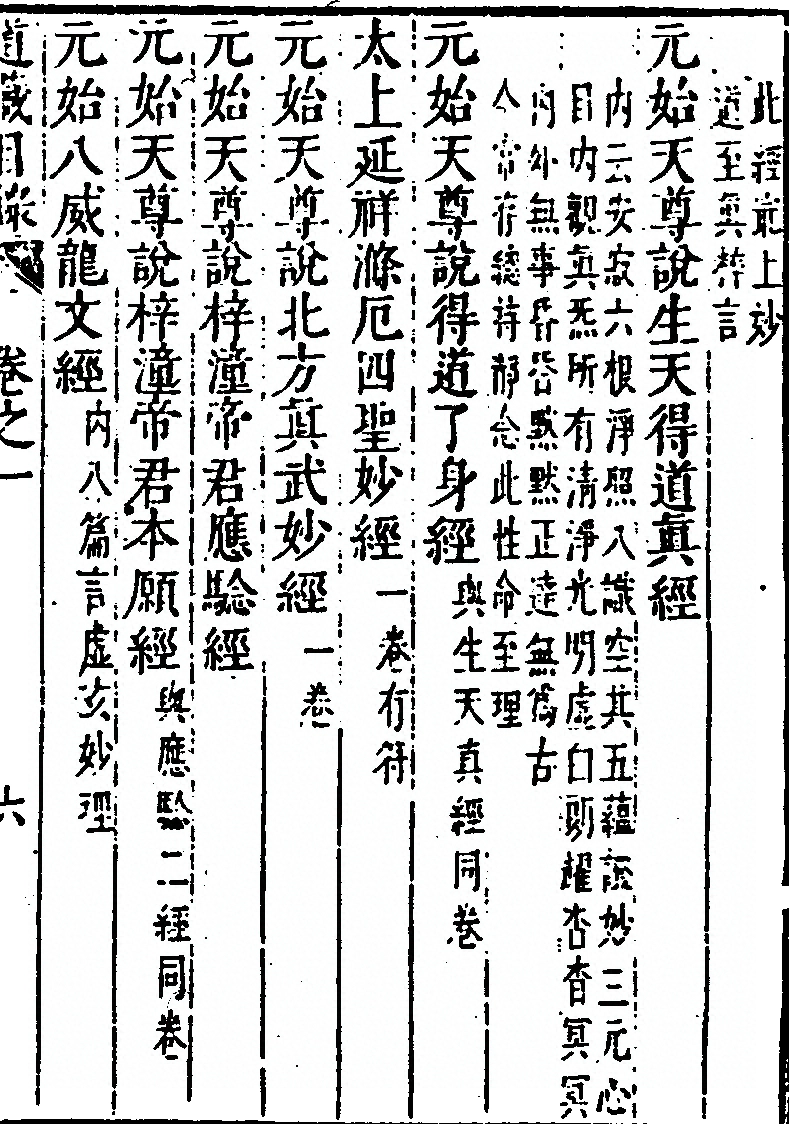 此經最上妙
道至眞粹言
元始天尊說生天得道眞經
內云安寂六根淨照八識空其五蘊說妙三元心
目內觀眞炁所有清淨光明虛白朗耀杳杳冥冥
內外無事昏昏默默正達無爲古
今常存總持靜念此性命至理
元始天尊說得道了身經
與生天真經同卷
太上延祥滌厄四聖妙經
一卷有符
元始天尊說北方眞武妙經
一卷
元始天尊說梓潼帝君應驗經
元始天尊說梓潼帝君本願經
與應驗二經同卷
元始八威龍文經
內八篇言虛玄妙理
道藏目錄
卷之一
六